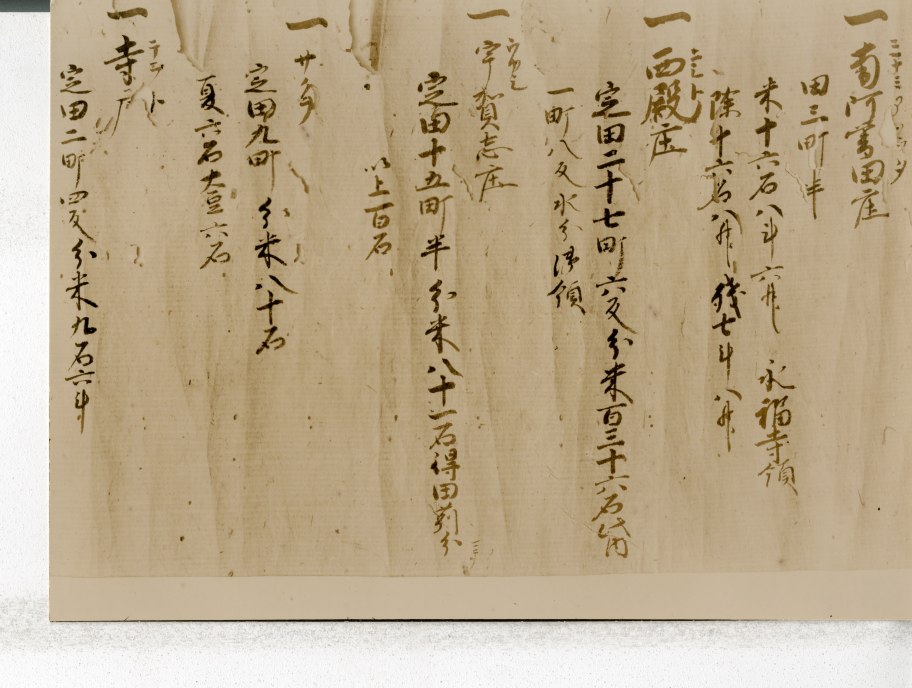 一 南阿冨田庄
田三町半
米十六石八斗六升 永福寺領
除十六石八升 残七斗八升
一 西殿庄
定田二十七町六反分米百三十六石
一町八反 分御領
一 宇賀志庄
定田十五町半 分米八十一石得田 分
以上百石
一
定田九町 分米八十石
夏六石大豆六石
一 寺戸
定田二町四反分米九石六斗